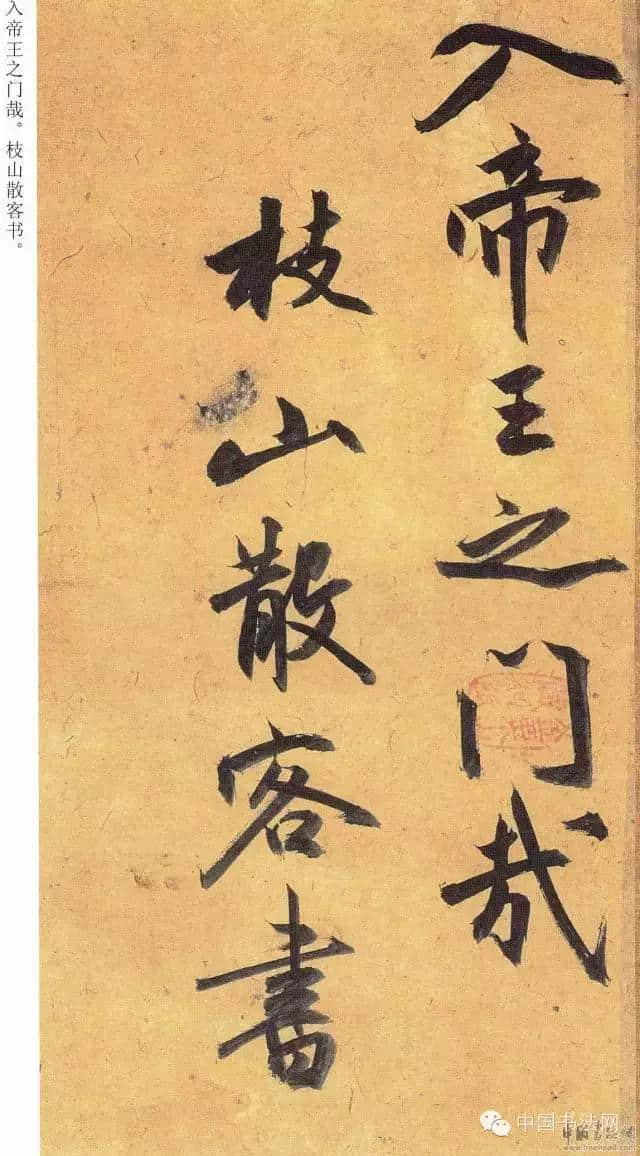 入帝王之门哉
枝山散客書
入帝王之门哉。枝山散客书。
中国书法网
www.freehead.com